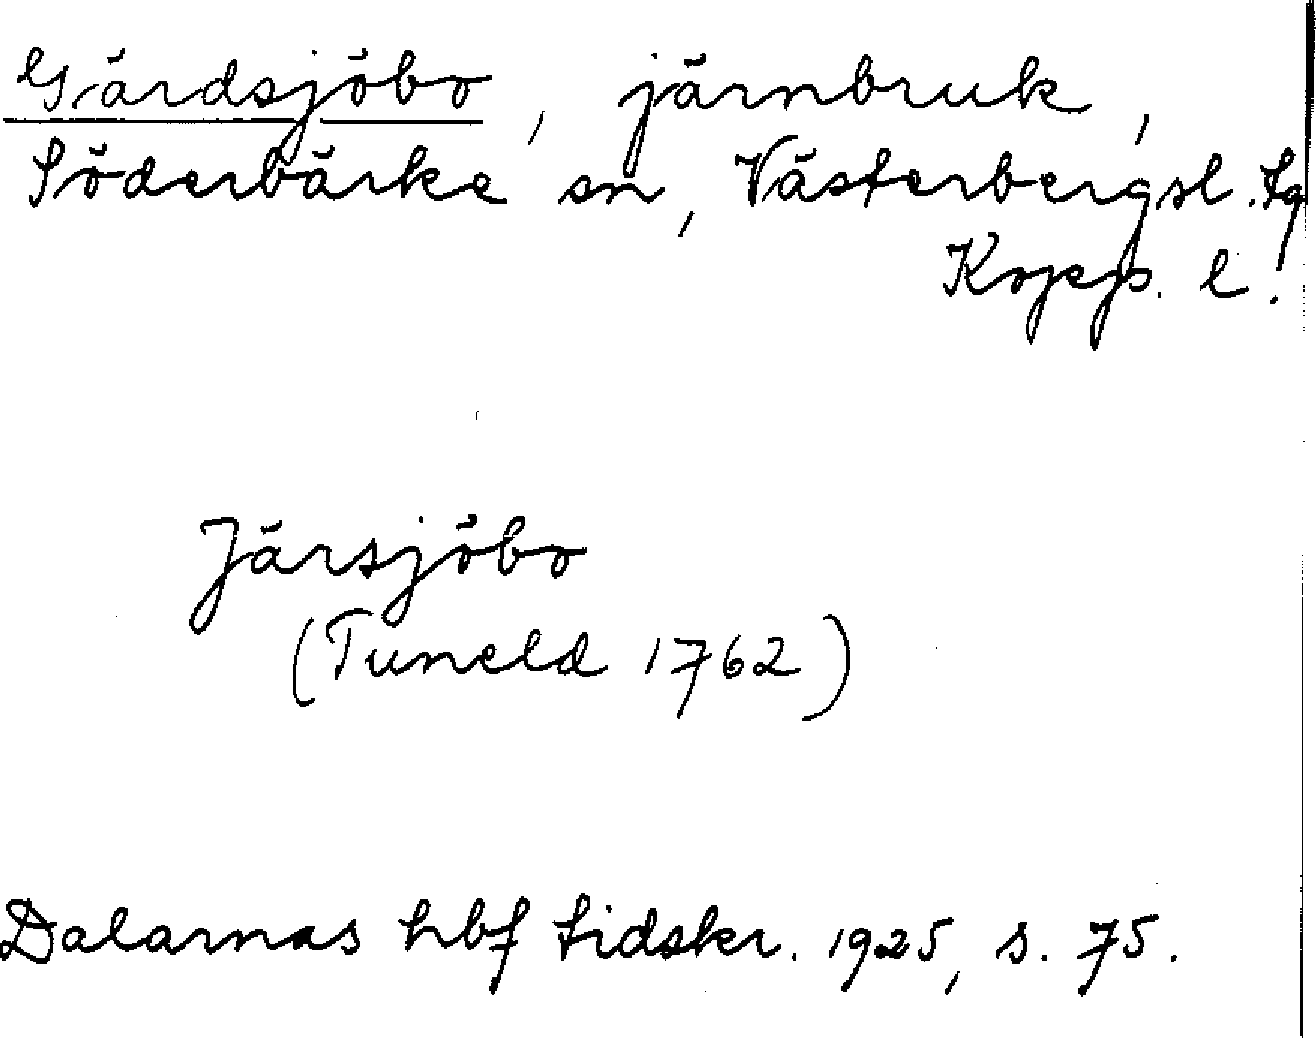 Gärdsjöbo, järnbruk,
Söderbärke sn, Västerbergsl. tg
Kopp. l.
Järsjöbo
(Tuneld 1762)
Dalarnas hbf tidskr. 1925, s. 75.